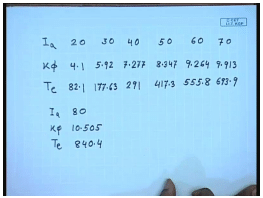 Ia 20 30 40 50 60 70
Kφ 4.1 5.92 7.277 8.347 9.264 9.913
Te 82.1 177.63 291 417.3 555.8 693.9
Ia 80
Kφ 10.505
Te 840.4